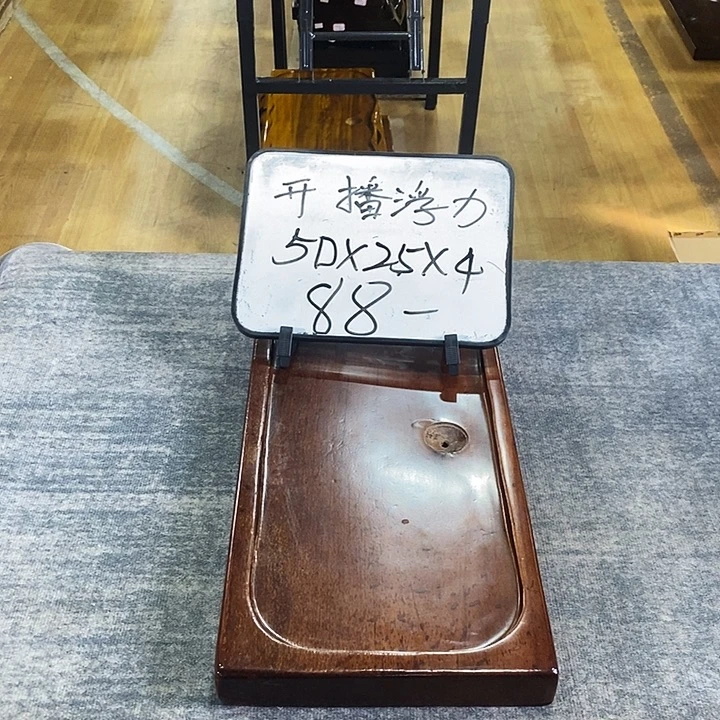 开播浮力
50X25X4
88-